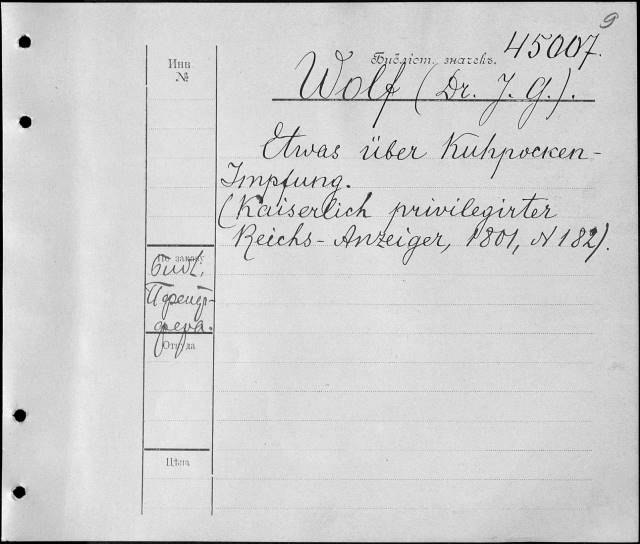 9
45007.
Библіот. значекъ.
Инв.
№
Wolf (Dr. J. G.).
Etwas über Kuhpocken-
Impfung.
(Kaiserlich privilegirter
Reichs-Anzeiger, 1801, N 182).
По заказу
Библ.
Пфейф-
фера.
Откуда
Цѣна